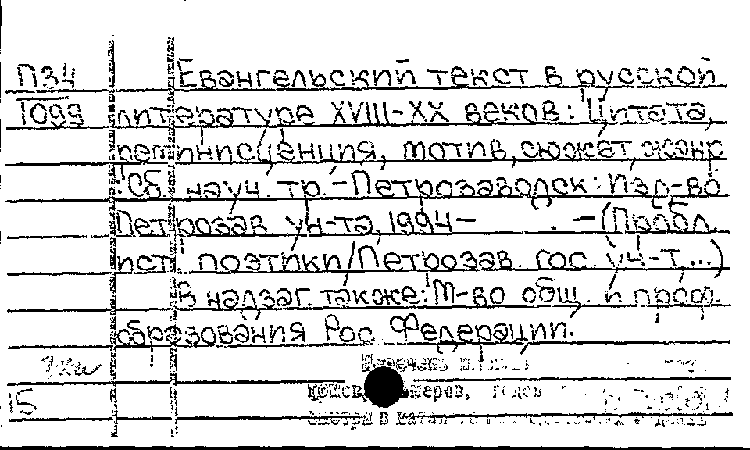 П34 Евангельский текст в русской
1099 литературе XVIII-XX веков: Цитата,
реминисценция, мотив, сюжет, жанр
: Сб. науч. тр. - Петрозаводск: Изд-во
Петрозав. ун-та, 1994 - . - (Пробл.
ист. поэтики/Петрозав. гос. ун-т, ...)
В надзаг. также: М-во общ. и проф.
образования Рос. Федерации.
Перечень
смотри в
15